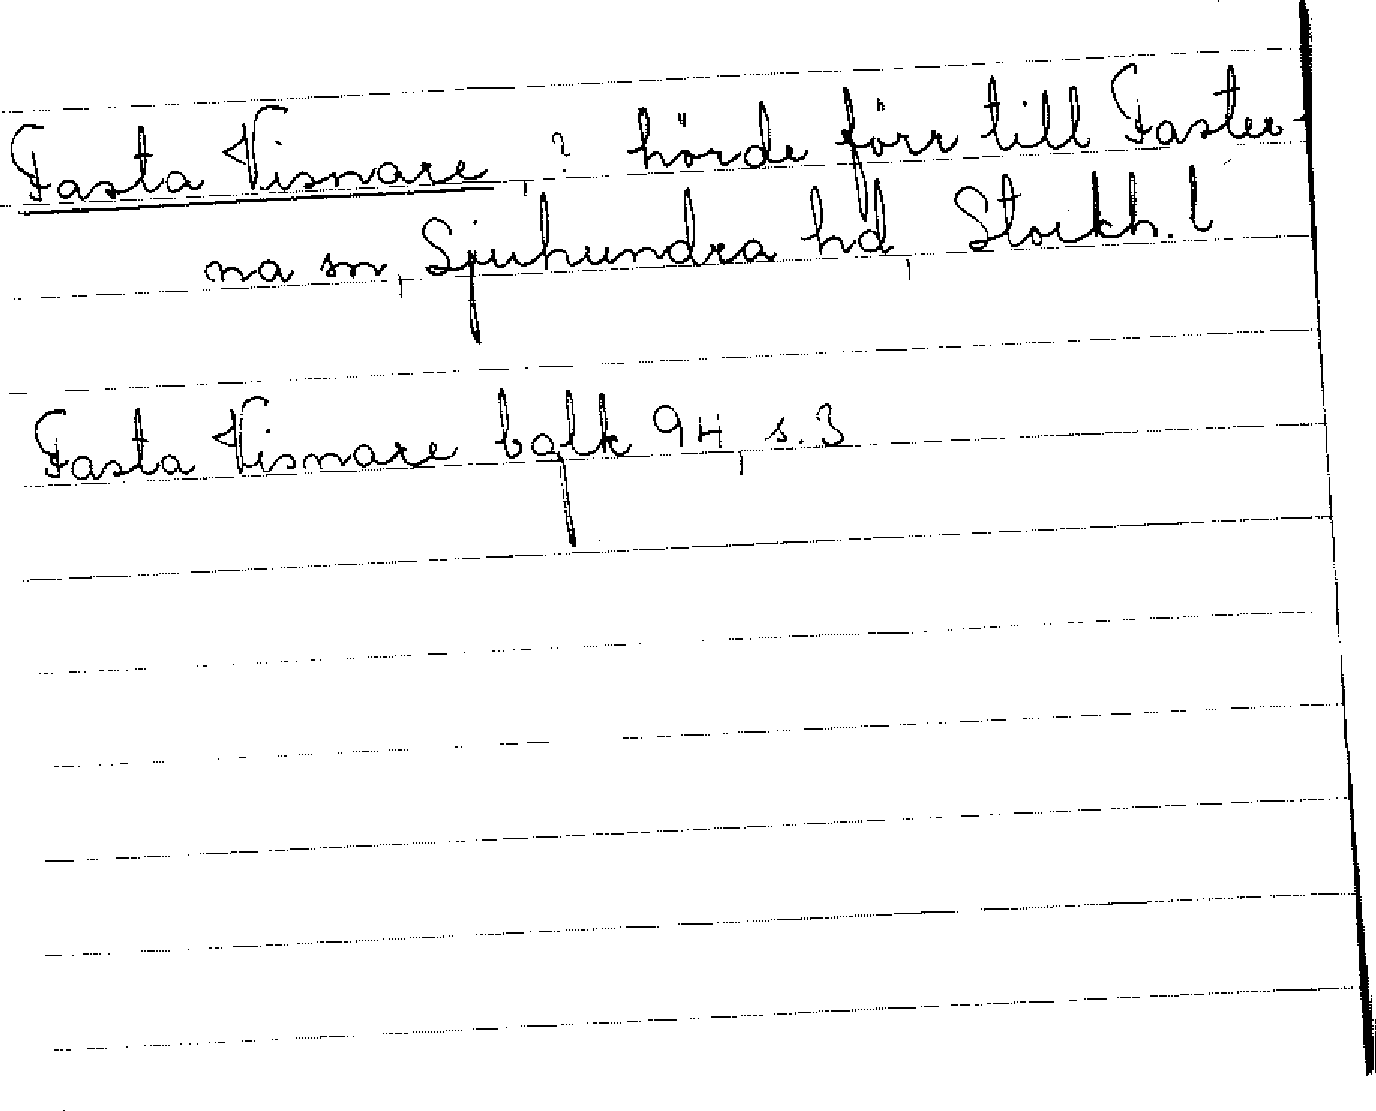 Fasta Visnare, ? hörde förr till Faster-
na sn, Sjuhundra hd, Stockh. l
Fasta Visnare bqlk 94, s. 3